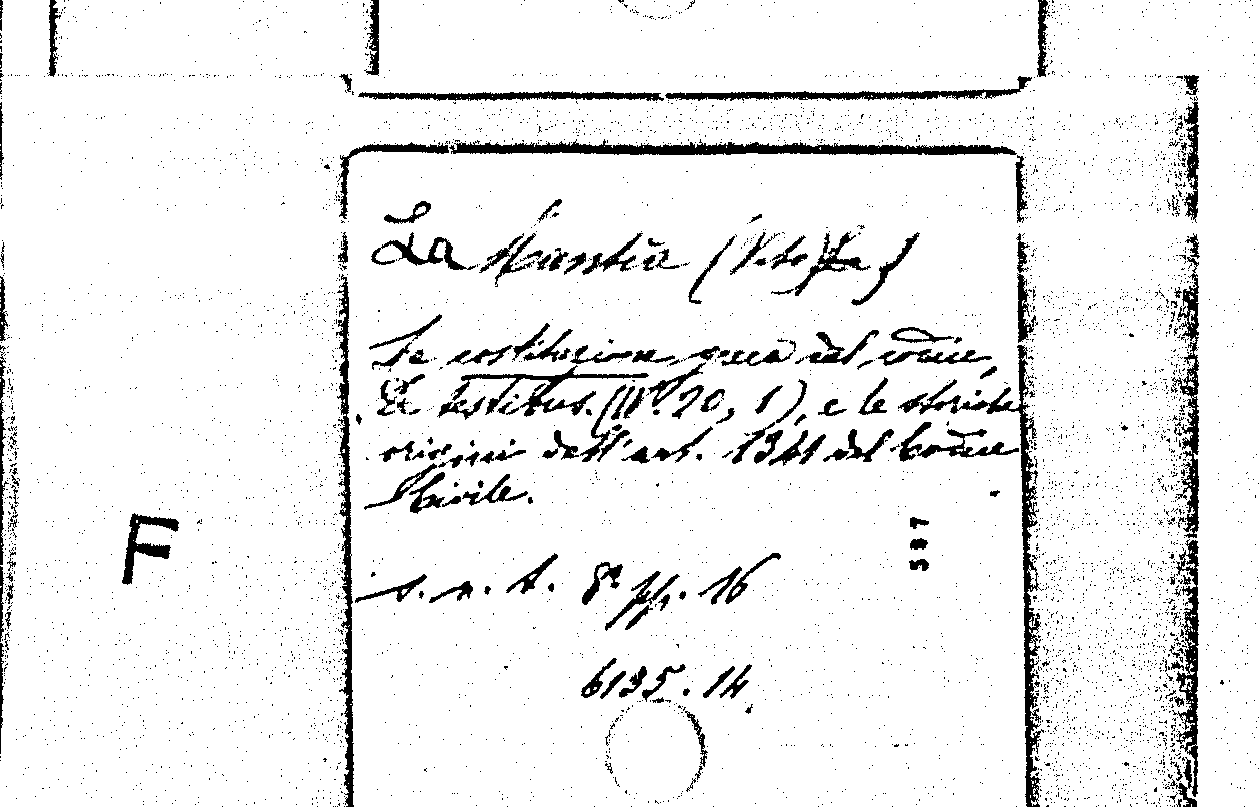 La Mantia (Vito) La)
La costituzione greca del codice,
De testibus. (IV. 20, 1), e le storiche
origini dell'art. 1341 del Codice
Civile.
F
587
s. n. t. 8º pp. 16
6135.14